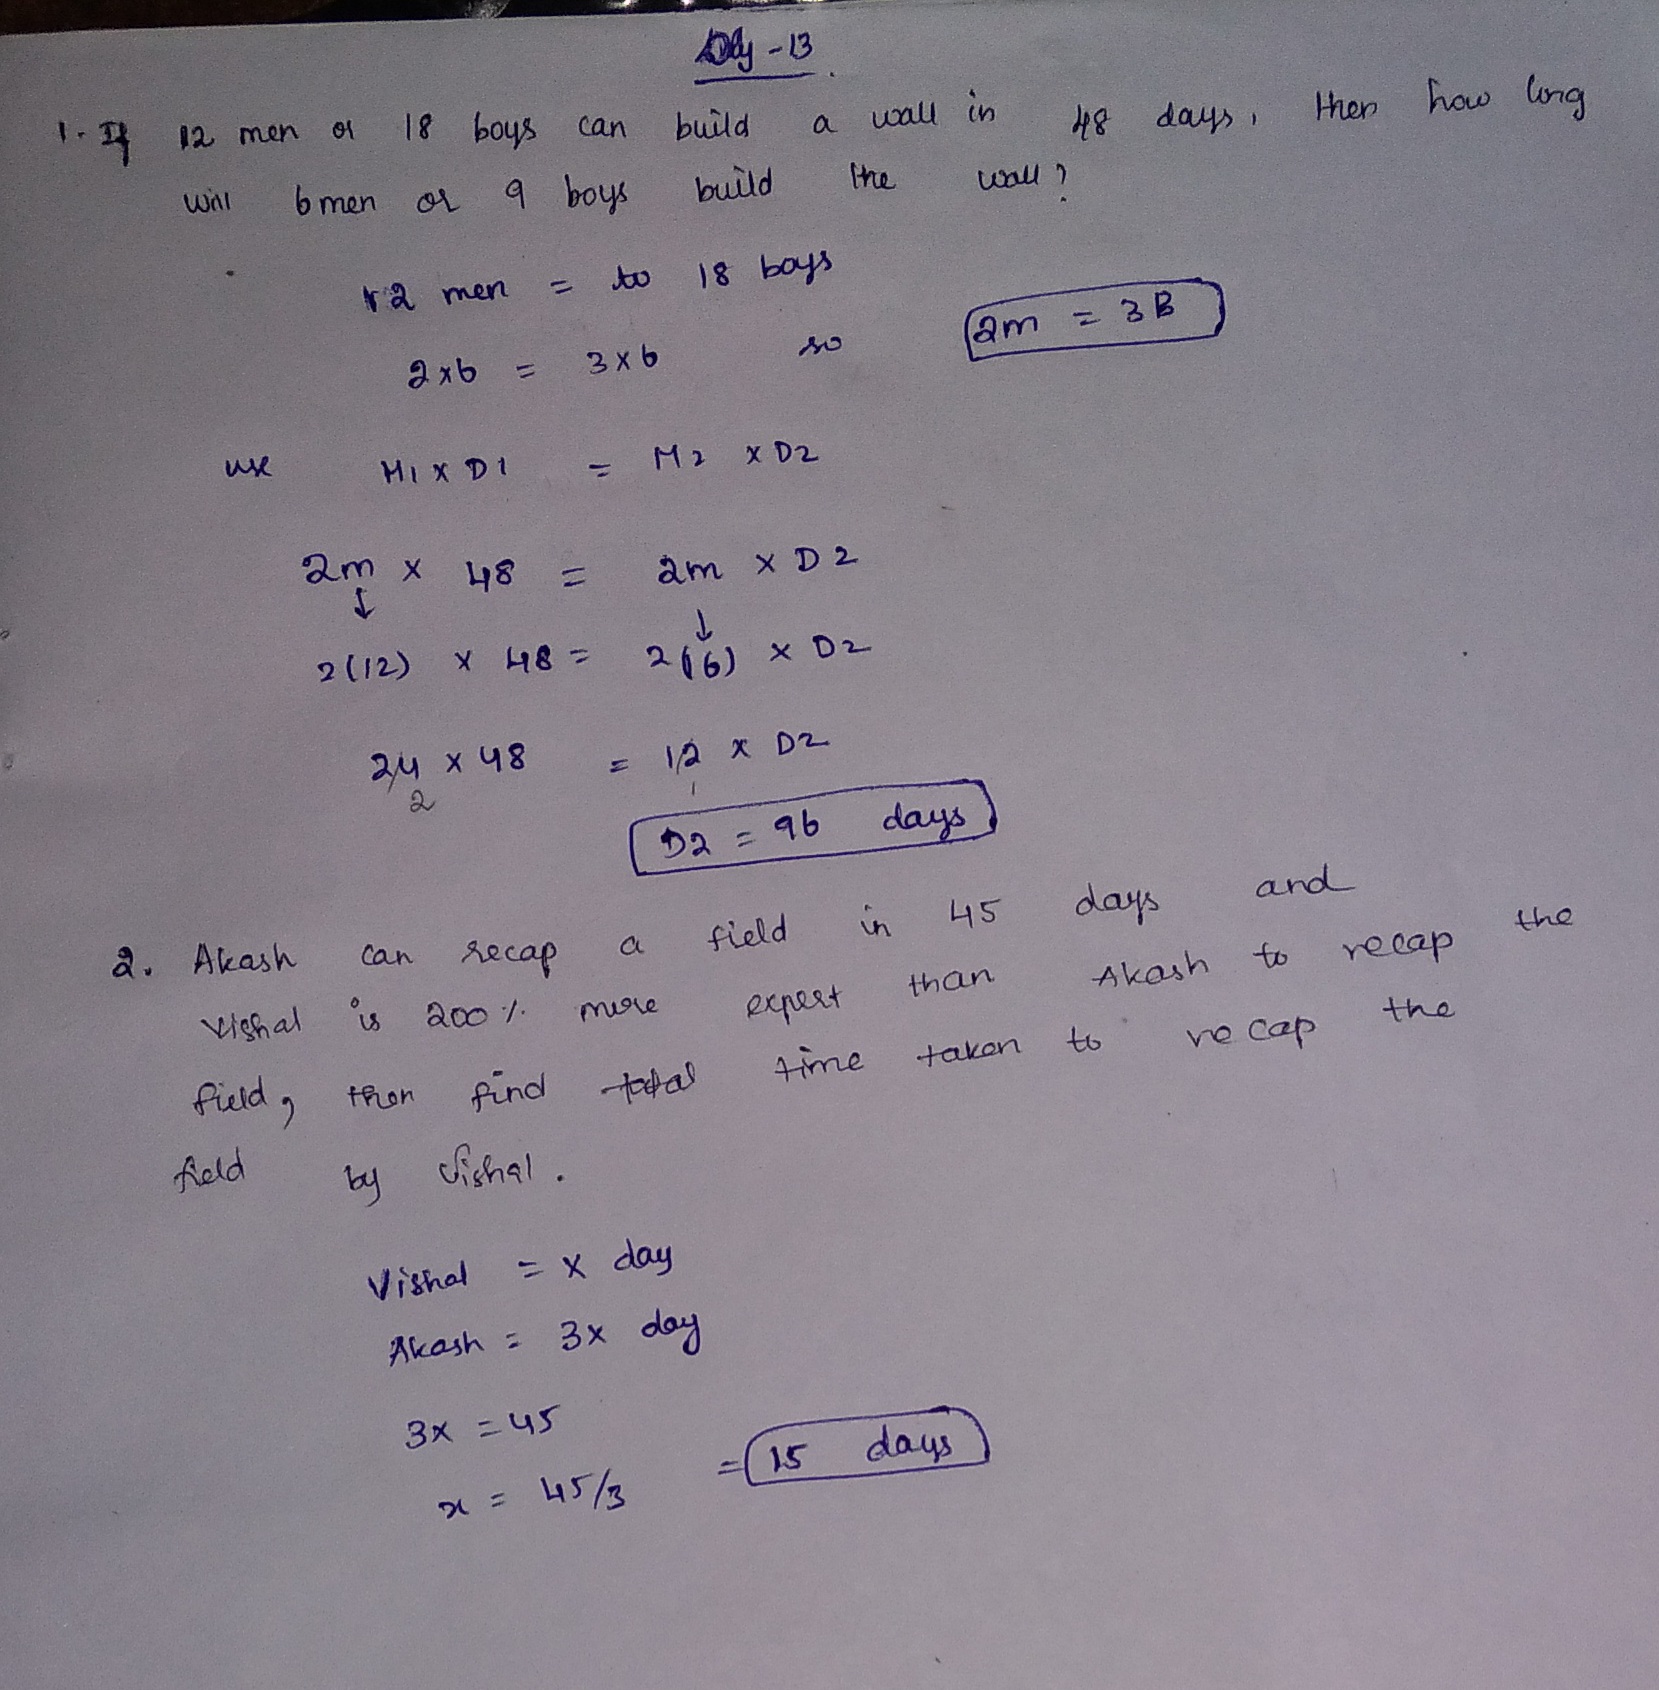 Day - 13
1. If 12 men or 18 boys can build a wall in 48 days, then how long
will 6 men or 9 boys build the wall?
12 men = to 18 boys
2x6 = 3x6 so 2m = 3B
use M1 x D1 = M2 x D2
2m x 48 = 2m x D2
↓ ↓
2(12) x 48 = 2(6) x D2
24 x 48 = 12 x D2
2 1
D2 = 96 days
2. Akash can recap a field in 45 days and
Vishal is 200% more expert than Akash to recap the
field, then find total time taken to recap the
field by Vishal.
Vishal = x day
Akash = 3x day
3x = 45
x = 45/3 = 15 days